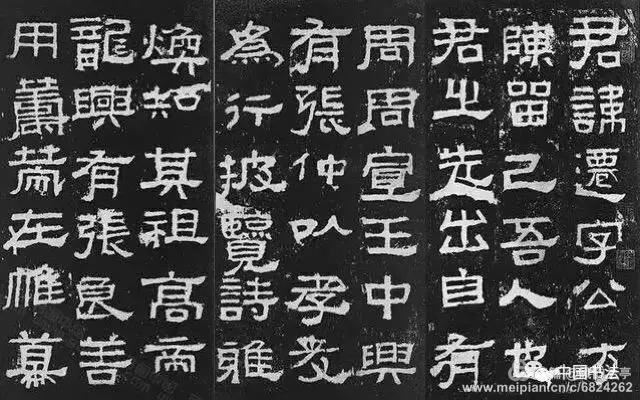 君諱遷字公方
陳留己吾人也
君之先出自有
周周宣王中興
有張仲以孝友
為行披覽詩雅
煥知其祖高帝
龍興有張良善
用籌策在帷幕
中国书法亭
www.meipian.cn/c/6824262